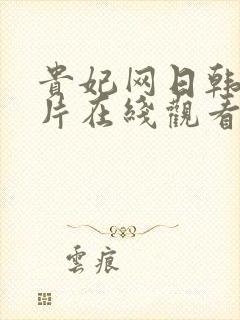 貴妃网日韩
片在綫觀看
雲痕